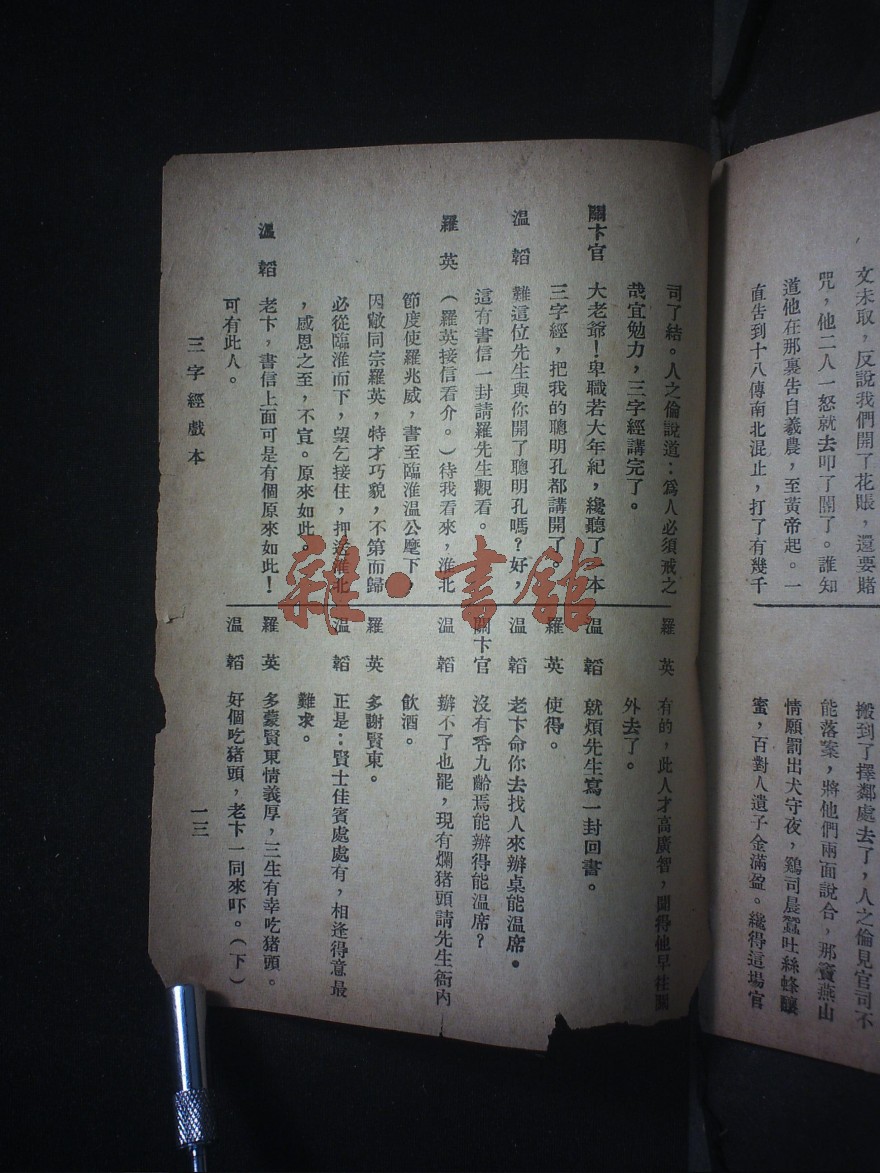 文未取，反說我們開了花賬，還要賭
咒，他二人一怒就去叩了關了。誰知
道他在那裏告自羲農，至黃帝起。一
直告到十八傳南北混止，打了有幾千
搬到了擇鄰處去了，人之倫見官司不
能落案，將他們兩面說合，那竇燕山
情願罰出犬守夜，鷄司晨蠶吐絲蜂釀
蜜，百對人遺子金滿盈。纔得這場官
司了結。人之倫說道：爲人必須戒之
哉宜勉力，三字經講完了。
關卞官　大老爺！卑職若大年紀，纔聽了一本
三字經，把我的聰明孔都講開了。
溫　韜　難這位先生與你開了聰明孔嗎？好，
這有書信一封請羅先生觀看。
羅　英　（羅英接信看介。）待我看來，淮北
節度使羅兆威，書至臨淮溫公麾下，
因敝同宗羅英，特才巧貌，不第而歸
必從臨淮而下，望乞接住，押送淮北
，感恩之至，不宣。原來如此。
溫　韜　老卞，書信上面可是有個原來如此！
可有此人。
羅　英　有的，此人才高廣智，聞得他早往
外去了。
溫　韜　就煩先生寫一封回書。
羅　英　使得。
溫　韜　老卞命你去找人來辦桌能溫席。
關卞官　沒有香九齡焉能辦得能溫席？
溫　韜　辦不了也罷，現有爛猪頭請先生衙內
飲酒。
羅　英　多謝賢東。
溫　韜　正是：賢士佳賓處處有，相逢得意最
難求。
羅　英　多蒙賢東情義厚，三生有幸吃猪頭。
溫　韜　好個吃猪頭，老卞一同來吓。（下）
三字經戲本
一三
雜·書館